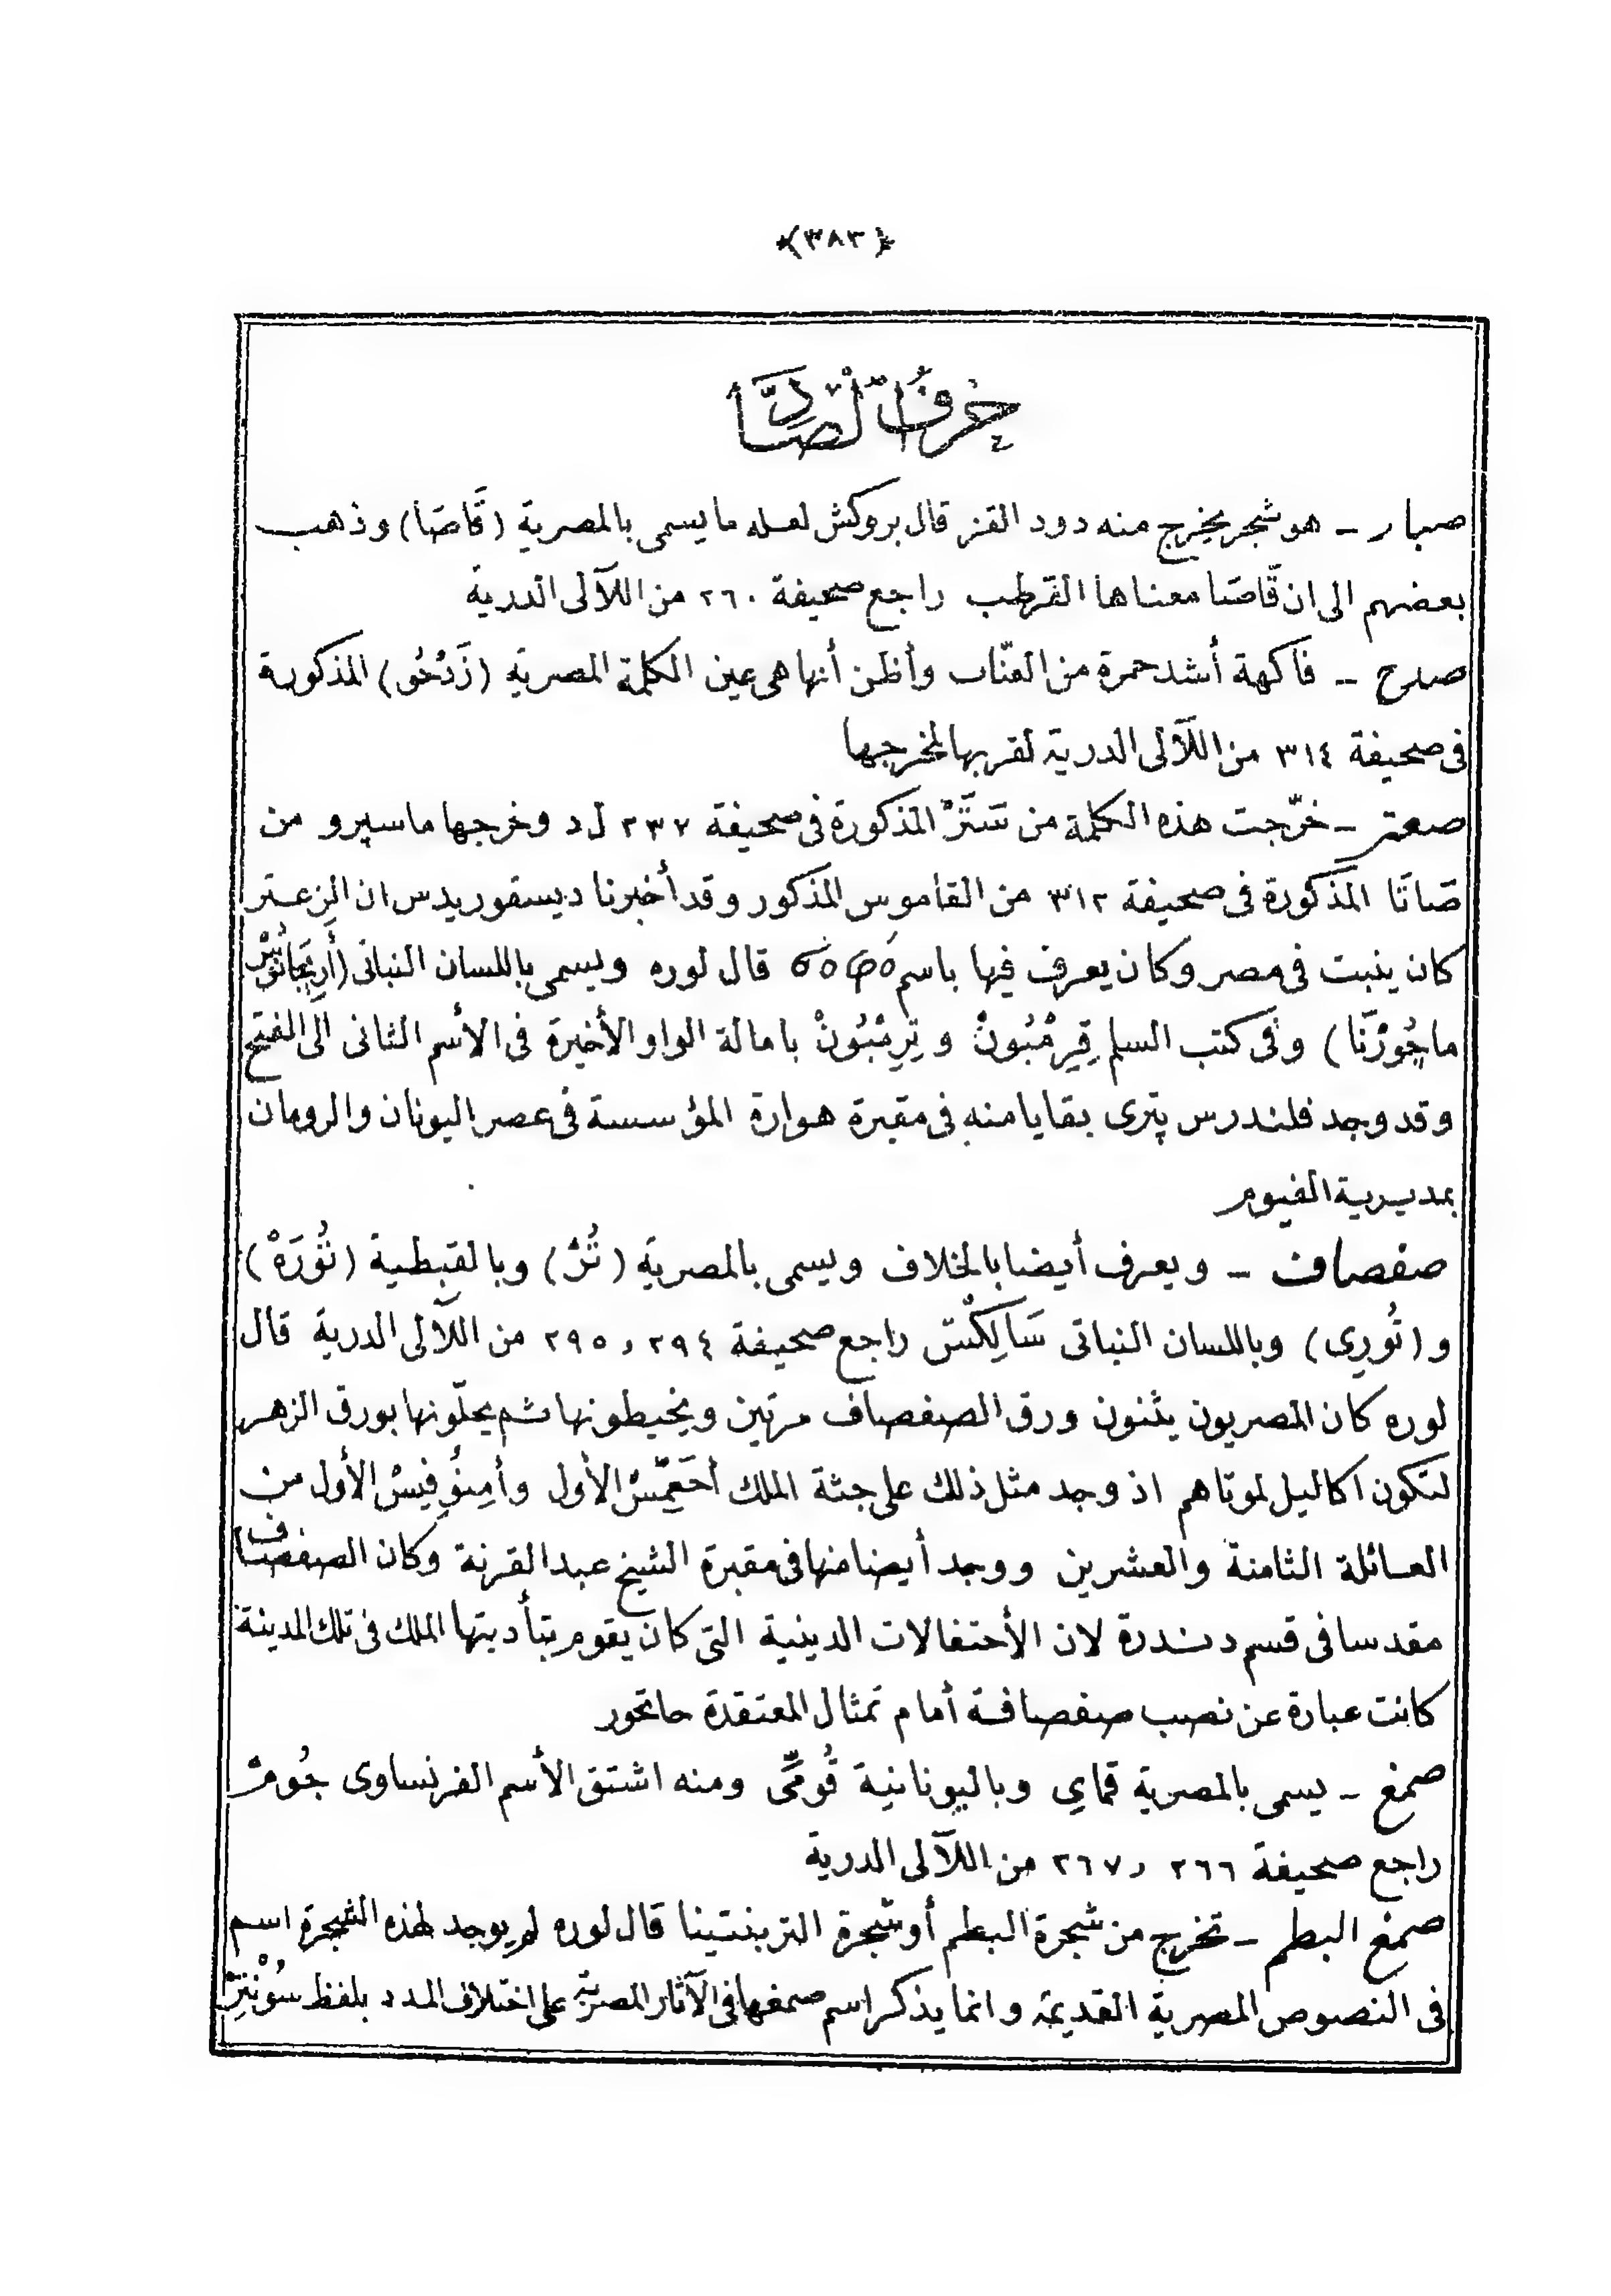 ﴿٣٨٣﴾
حرف الصاد
صبار ـ هو شجر يخرج منه دود القز قال بروكش لعله ما يسمى بالمصرية (قَاصَا) وذهب
بعضهم الى ان قَاصَا معناها القرطب راجع صحيفة ٢٦٠ من اللآلى الدرية
صدح ـ فاكهة أشد حمرة من العنّاب وأظن أنها هى عين الكلمة المصرية (زَدْخُو) المذكورة
فى صحيفة ٣١٤ من اللآلى الدرية لقربها لمخرجها
صعتر ـ خرّجت هذه الكلمة من سَتَرْ المذكورة فى صحيفة ٢٣٧ ل د وخرجها ماسپرو من
صَاتَا المذكورة فى صحيفة ٣١٢ من القاموس المذكور وقد أخبرنا ديسقوريدس ان الزعتر
كان ينبت فى مصر وكان يعرف فيها باسم قال لوره ويسمى باللسان النباتى (أُرِيجَانُومْ
ماجُورَنَّا) وفى كتب السلم قِرِمْبُونْ و تِرِمْبُونْ بامالة الواو الأخيرة فى الأسم الثانى الى الفتح
وقد وجد فلندرس پترى بقايا منه فى مقبرة هوارة المؤسسة فى عصر اليونان والرومان
بمديرية الفيوم
صفصاف ـ ويعرف أيضا بالخلاف ويسمى بالمصرية (تُرْ) وبالقبطية (تُورَهْ)
و (تُورِى) وباللسان النباتى سَالِكْسْ راجع صحيفة ٢٩٤ و ٢٩٥ من اللآلى الدرية قال
لوره كان المصريون يثنون ورق الصفصاف مرتين ويخيطونها ثم يحلّونها بورق الزهر
لتكون اكاليل لموتاهم اذ وجد مثل ذلك على جثة الملك أحَعِمْسْ الأول وأمِنُوفِيسْ الأول من
العائلة الثامنة والعشرين ووجد أيضا منها فى مقبرة الشيخ عبد القرنة وكان الصفصاف
مقدسا فى قسم دندرة لان الأحتفالات الدينية التى كان يقوم بتأديتها الملك فى تلك المدينة
كانت عبارة عن نصب صفصافة أمام تمثال المعتقدة حاتحور
صمغ ـ يسمى بالمصرية قماىِ وباليونانية قُومِّى ومنه اشتق الأسم الفرنساوى جُومْ
راجع صحيفة ٢٦٦ و ٢٦٧ من اللآلى الدرية
صمغ البطم ـ تخرج من شجرة البطم أو شجرة التربنتينا قال لوره لم يوجد لهذه الشجرة اسم
فى النصوص المصرية القديمة وانما يذكر اسم صمغها فى الآثار المصرية على اختلاف المدد بلفظ سُونْتِرْ